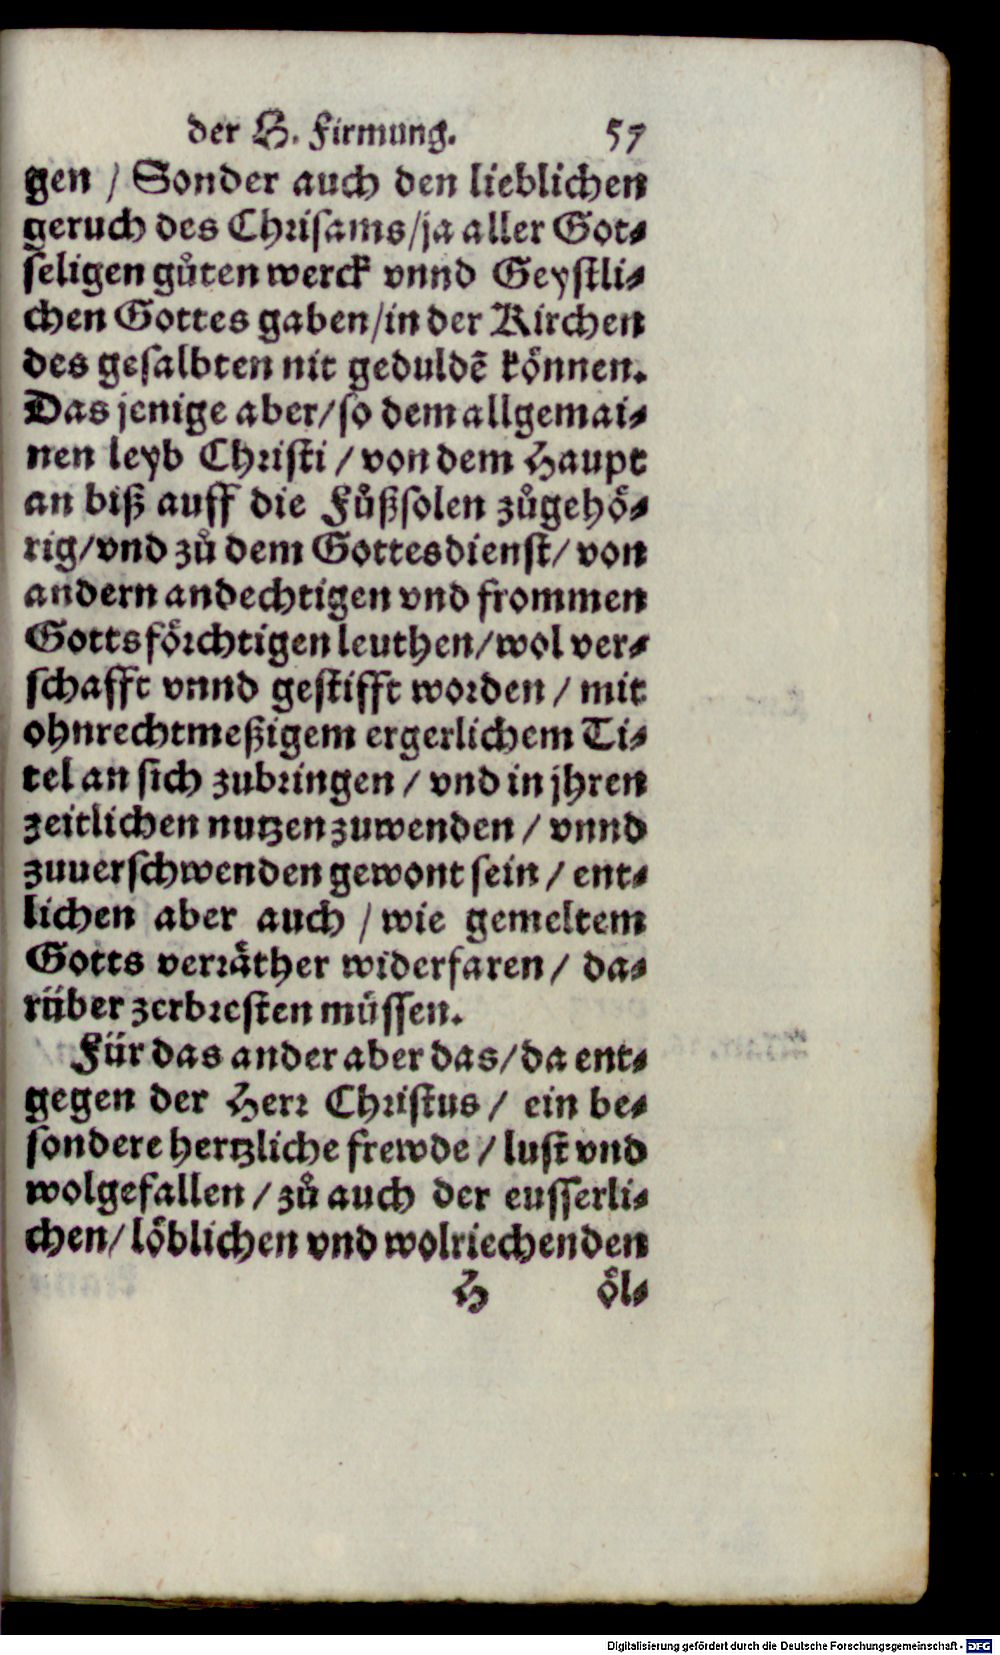 der H. Firmung. 57
gen / Sonder auch den lieblichen
geruch des Chrisams/ja aller Got-
seligen gůten werck vnnd Geystli-
chen Gottes gaben/in der Kirchen
des gesalbten nit geduldẽ koͤnnen.
Das jenige aber/so dem allgemai-
nen leyb Christi / von dem Haupt
an biß auff die Fůßsolen zůgehoͤ-
rig/vnd zů dem Gottesdienst/ von
andern andechtigen vnd frommen
Gottsfoͤrchtigen leuthen/wol ver-
schafft vnnd gestifft worden / mit
ohnrechtmeßigem ergerlichem Ti-
tel an sich zubringen / vnd in jhren
zeitlichen nutzen zuwenden / vnnd
zuuerschwenden gewont sein / ent-
lichen aber auch / wie gemeltem
Gotts verraͤther widerfaren / da-
rüber zerbresten müssen.
Für das ander aber das/da ent-
gegen der Herr Christus / ein be-
sondere hertzliche frewde / lust vnd
wolgefallen / zů auch der eusserli-
chen/ loͤblichen vnd wolriechenden
H oͤl-
Digitalisierung gefördert durch die Deutsche Forschungsgemeinschaft - DFG